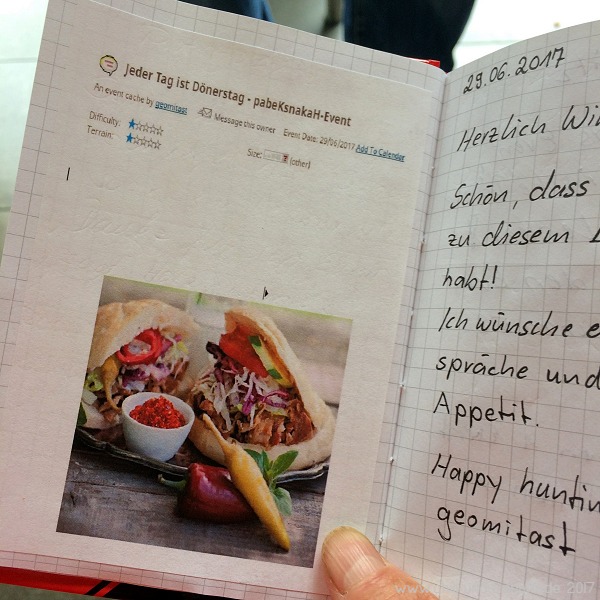 Jeder Tag ist Dönerstag - pabeKsnakaH-Event
An event cache by geomitast Message this owner Event Date: 29/06/2017 Add To Calendar
Difficulty:
Terrain: Size: (other)
29.06.2017
Herzlich
Schön, dass
zu diesem
habt!
Ich wünsche
spräche und
Appetit.
Happy
geomitast
2017